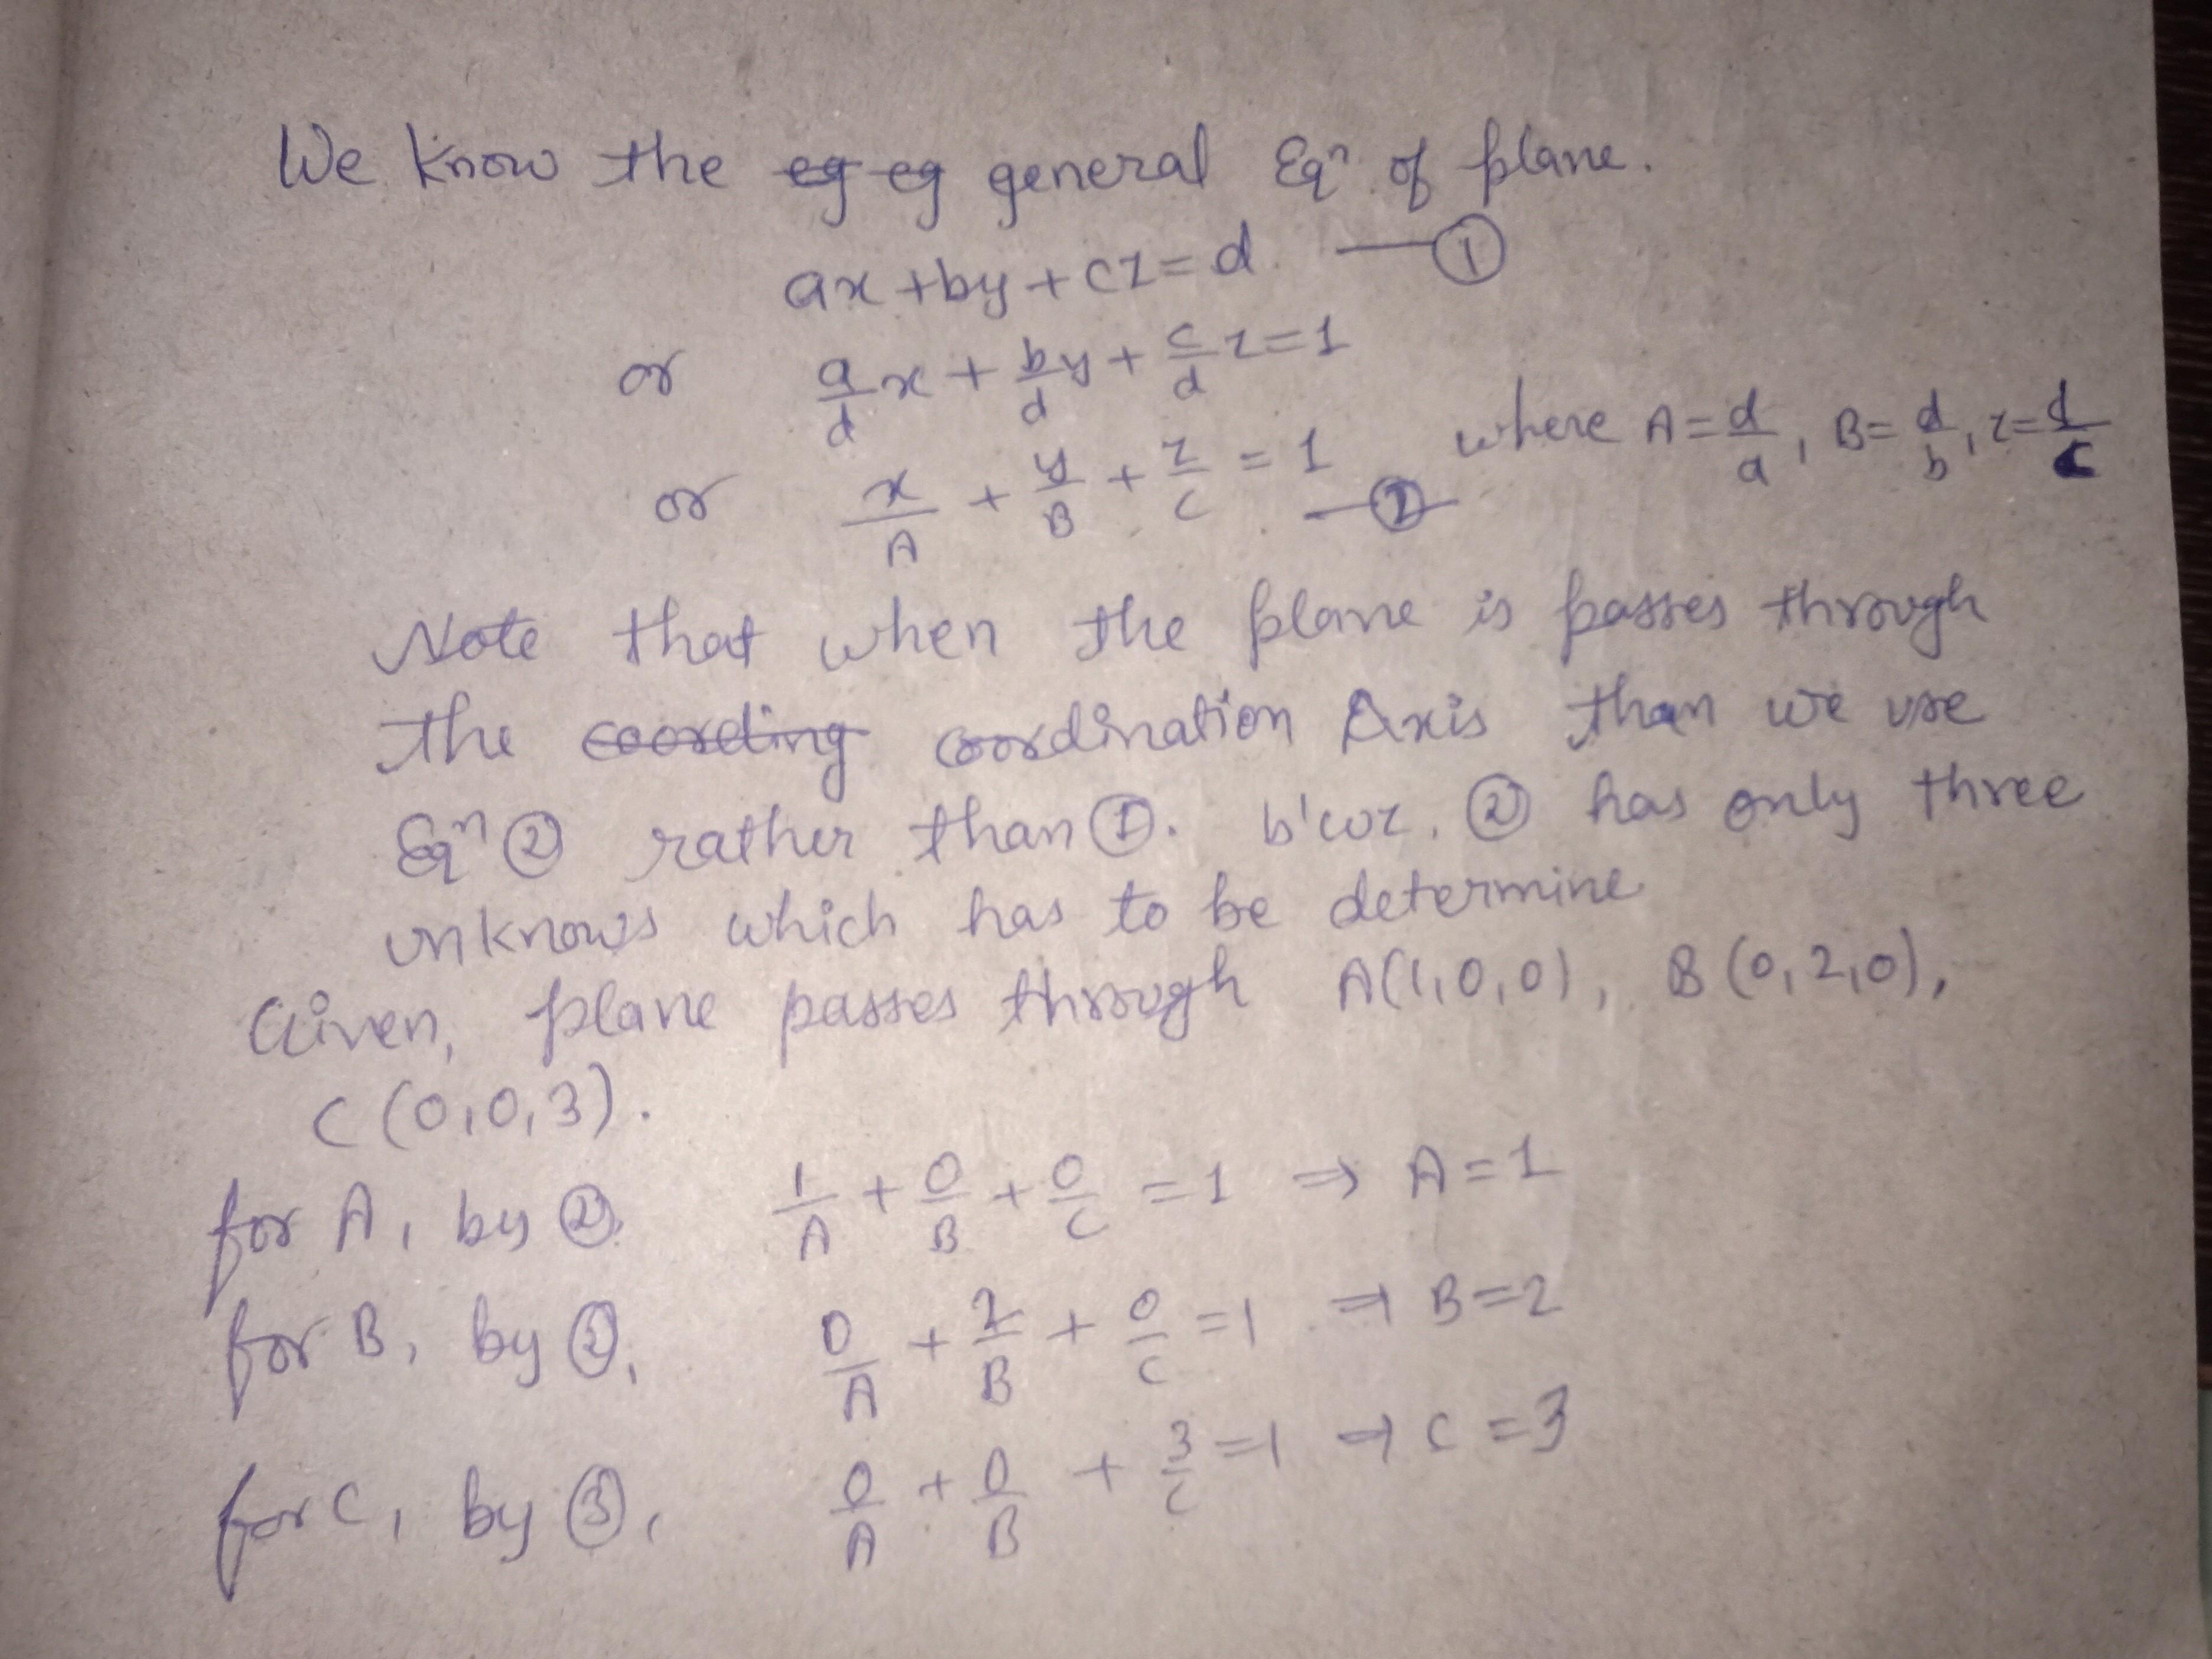 We know the eg eg general Eqⁿ of plane.
ax + by + cz = d. — ①
or a/d x + b/d y + c/d z = 1
or x/A + y/B + z/C = 1 — ② where A = d/a, B = d/b, z = d/c
Note that when the plane is passes through
the coording coordination Axis than we use
Eqⁿ ② rather than ①. b'coz. ② has only three
unknows which has to be determine
Given, plane passes through A(1,0,0), B(0,2,0),
C(0,0,3).
for A, by ②. 1/A + 0/B + 0/C = 1 ⇒ A = 1
for B, by ②, 0/A + 2/B + 0/C = 1 ⇒ B = 2
for C, by ③, 0/A + 0/B + 3/C = 1 ⇒ C = 3